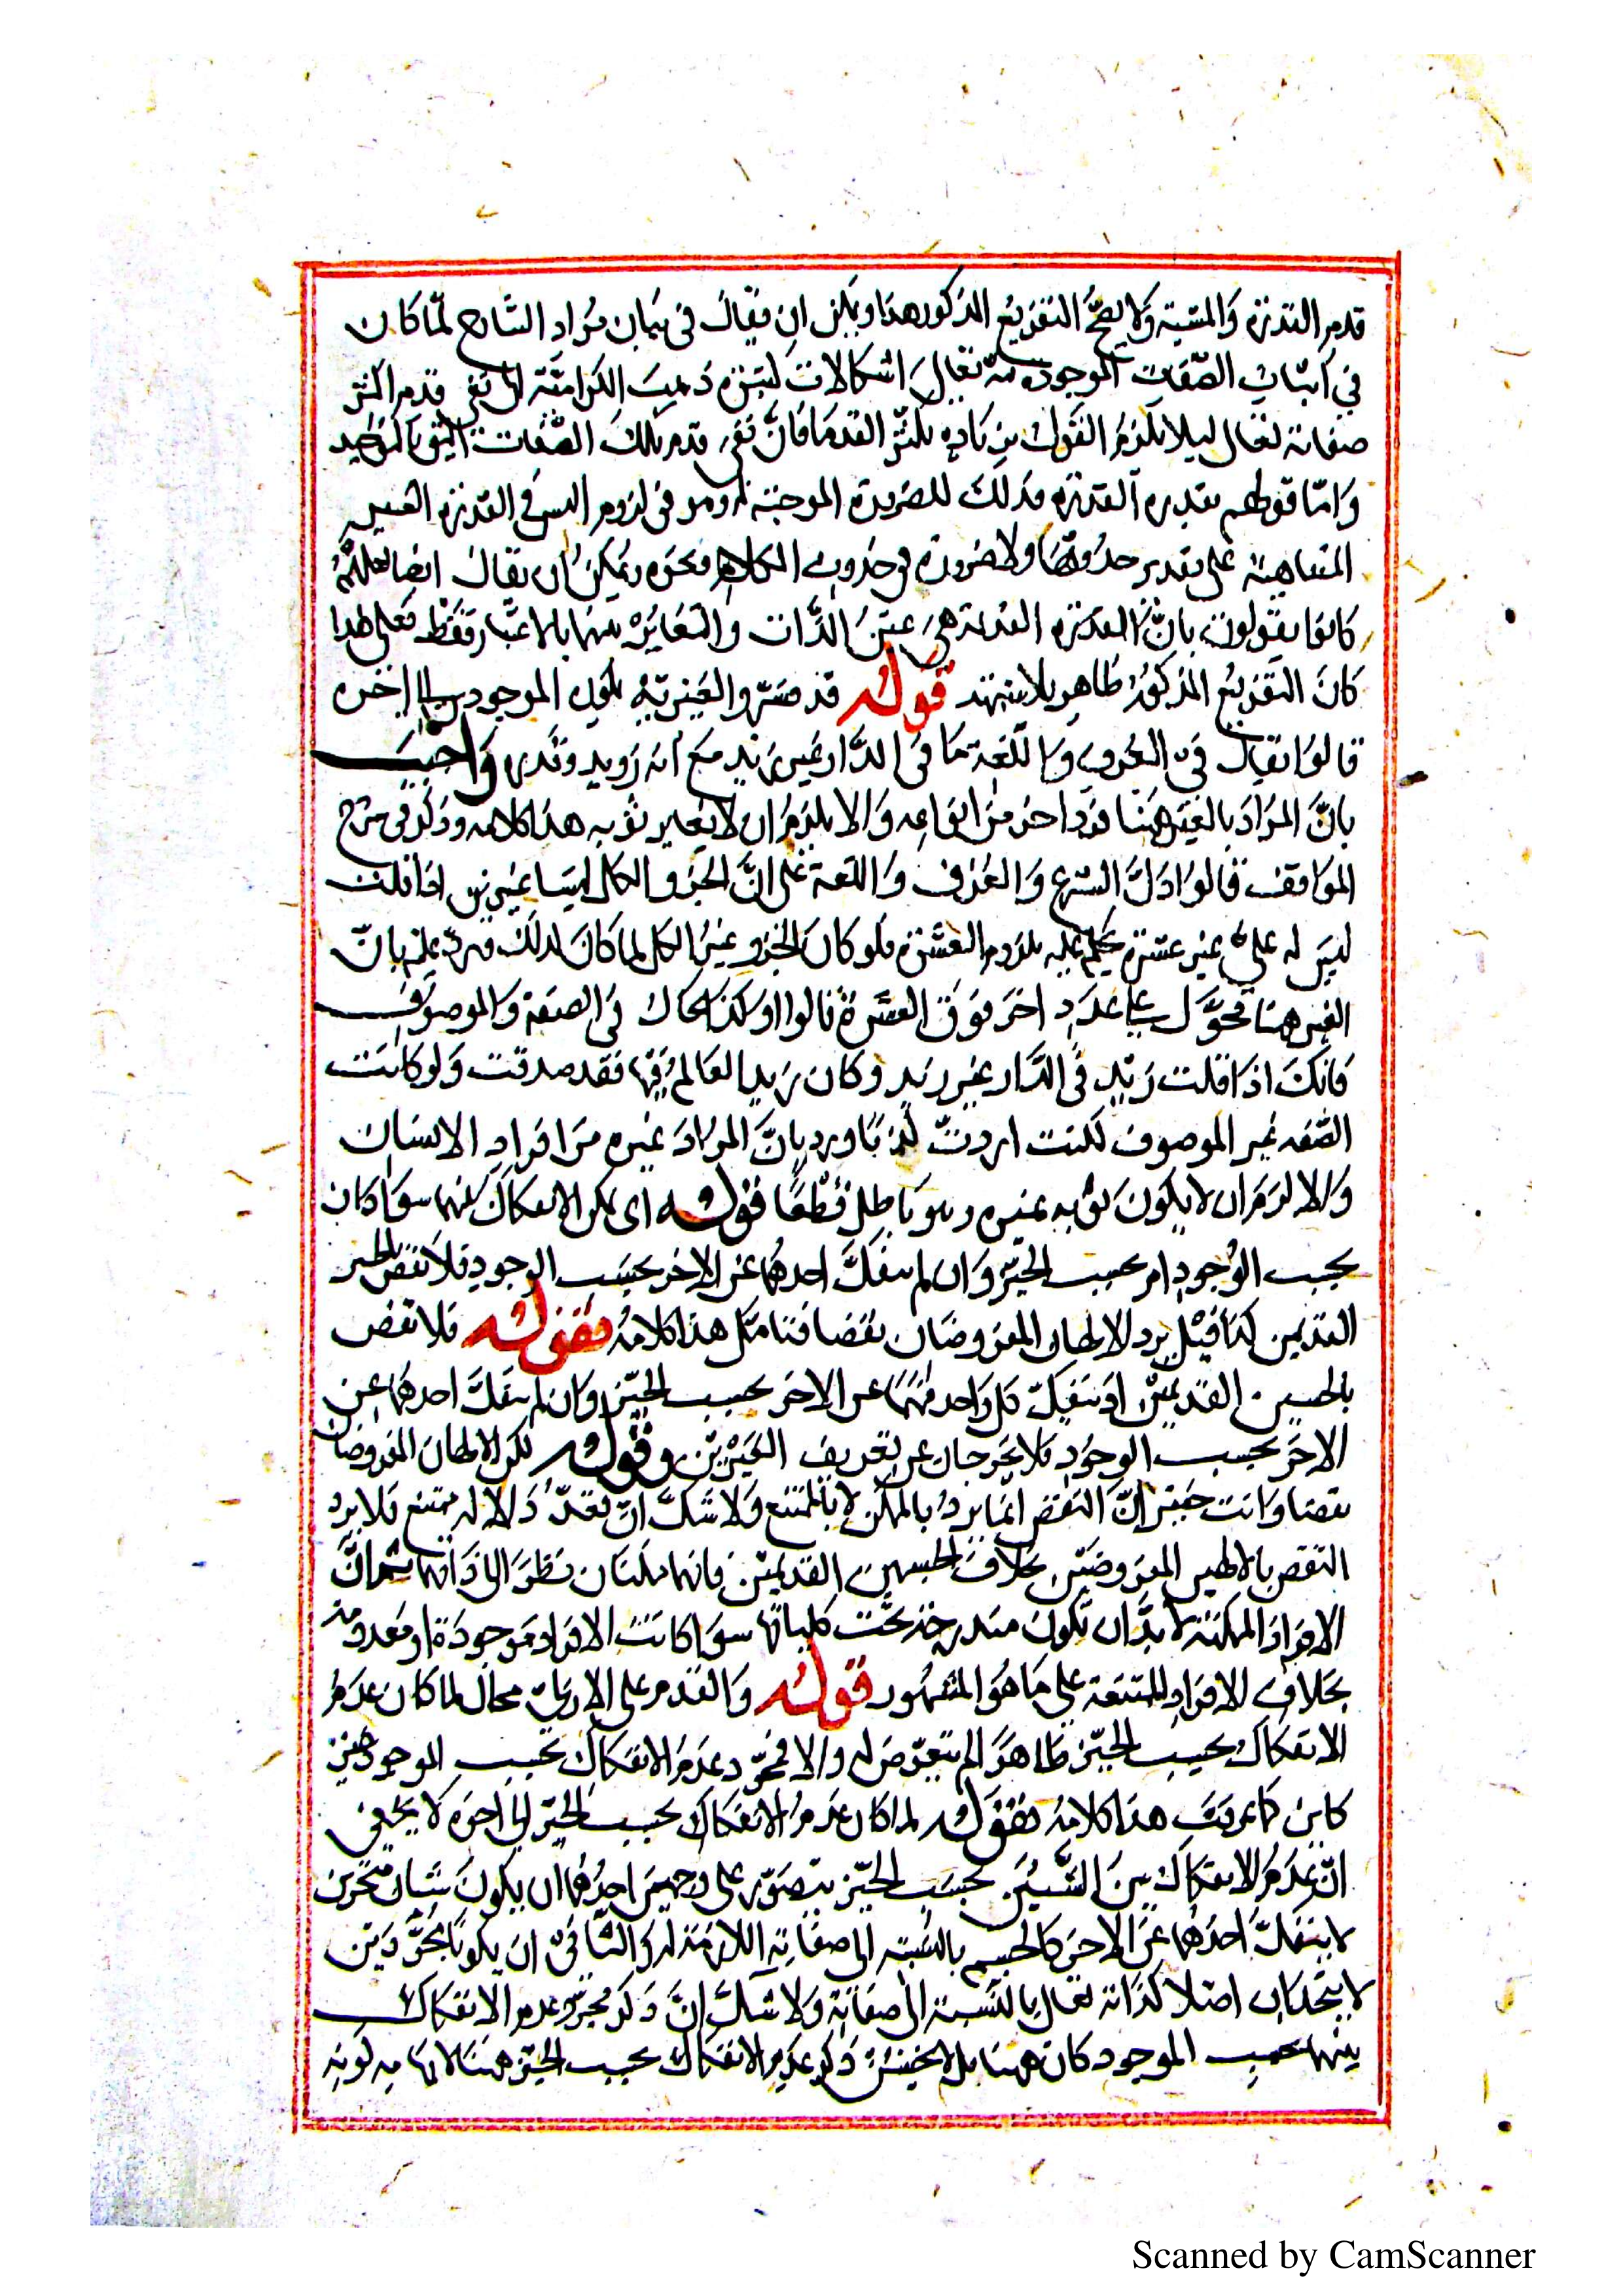 قدم القدرة والمشية ولا يصح التفريع المذكور هذا ويمكن ان يقال في بيان مراد الشارح لما كان
في اثبات الصفات الموجودة له تعالى اشكالات كثيرة ذهبت الكرامية الى نفي قدم اكثر
صفاته تعالى ليلا يلزم القول بزيادة تكثر القدما فان نفي قدم تلك الصفات اليق بالتوحيد
واما قولهم بقدم القدرة فذلك للضرورة الموجبة له وهو في لزوم التس في القدرة الغير
المتناهية على تقدير حدوثها ولا ضرورة في حدوث الكلام ونحوه ويمكن ان يقال ايضا لعلهم
كانوا يقولون بان القدرة القديمة هي عين الذات والتغاير بينهما بالاعتبار فقط فعلى هذا
كان التفريع المذكور ظاهر بلا شبهة قوله قد فسروا الغيرية بكون الموجودين الى اخره
قالوا يقال في العرف واللغة ما في الدار غير زيد مع انه ذو يد وقدرة واجيب
بان المراد بالغير ههنا فرد اخر من انواعه والا يلزم ان لا يغاير ثوبه هذا كلامه وذكر في شرح
المواقف قالوا دل الشرع والعرف واللغة على ان الجزو والكل ليسا غيرين اذا قلت
ليس له علي غير عشرة يحكم عليه بلزوم العشرة فلو كان الجزو غير الكل لما كان كذلك فرد عليه بان
الغير ههنا محمول على عدد اخر فوق العشرة قالوا وكذا الحال في الصفة والموصوف
فانك اذا قلت زيد في الدار غير زيد وكان زيد العالم فيها فقد صدقت ولو كانت
الصفة غير الموصوف لكنت اردت كذبا ورد بان المراد غيره من افراد الانسان
والا لزم ان لا يكون ثوبه غيره وهو باطل قطعا قوله اي يمكن الانفكاك بينهما سوا كان
بحسب الوجود ام بحسب الحيز وان لم ينفك احدهما عن الاخر بحسب الوجود فلا نقض بالجسمين
القديمين كذا قيل يرد الالهان المفروضان نقضا فتامل هذا كلامه فقوله فلا نقض
بالجسمين القديمين اذ ينفك كل واحد منهما عن الاخر بحسب الحيز وان لم ينفك احدهما عن
الاخر بحسب الوجود فلا يخرجان عن تعريف الغيرين وقوله لكن الالهان المفروضان
نقضا وانت خبير ان النقض انما يرد بالممكن لا بالممتنع ولا شك ان تعدد الاله ممتنع فلا يرد
النقض بالالهين المفروضين بخلاف الجسمين القديمين فانهما ممكنان نظرا الى ذاتهما ثم ان
الافراد الممكنة لا بد ان تكون مندرجة تحت كلياتها سوا كانت الافراد موجودة او معدومة
بخلاف الافراد الممتنعة على ما هو المشهور قوله والعدم على الازلي محال لما كان عدم
الانفكاك بحسب الحيز ظاهرا لم يتعرض له والا فمجرد عدم الانفكاك بحسب الوجود غير
كاف كما عرفت هذا كلامه فقوله لما كان عدم الانفكاك بحسب الحيز الى اخره لا يخفى
ان عدم الانفكاك بين الشيئين بحسب الحيز يتصور على وجهين احدهما ان يكون شيئان متحيزين
لا ينفك احدهما عن الاخر كالجسم بالنسبة الى صفاته اللازمة له والثاني ان يكونا مجردين
لا يتحدان اصلا كذاته تعالى بالنسبة الى صفاته ولا شك ان ذكر مجرد عدم الانفكاك
بينهما بحسب الموجود كان ههنا بل لا يحسن ذكر عدم الانفكاك بحسب الحيز ههنا لايهامه كونه